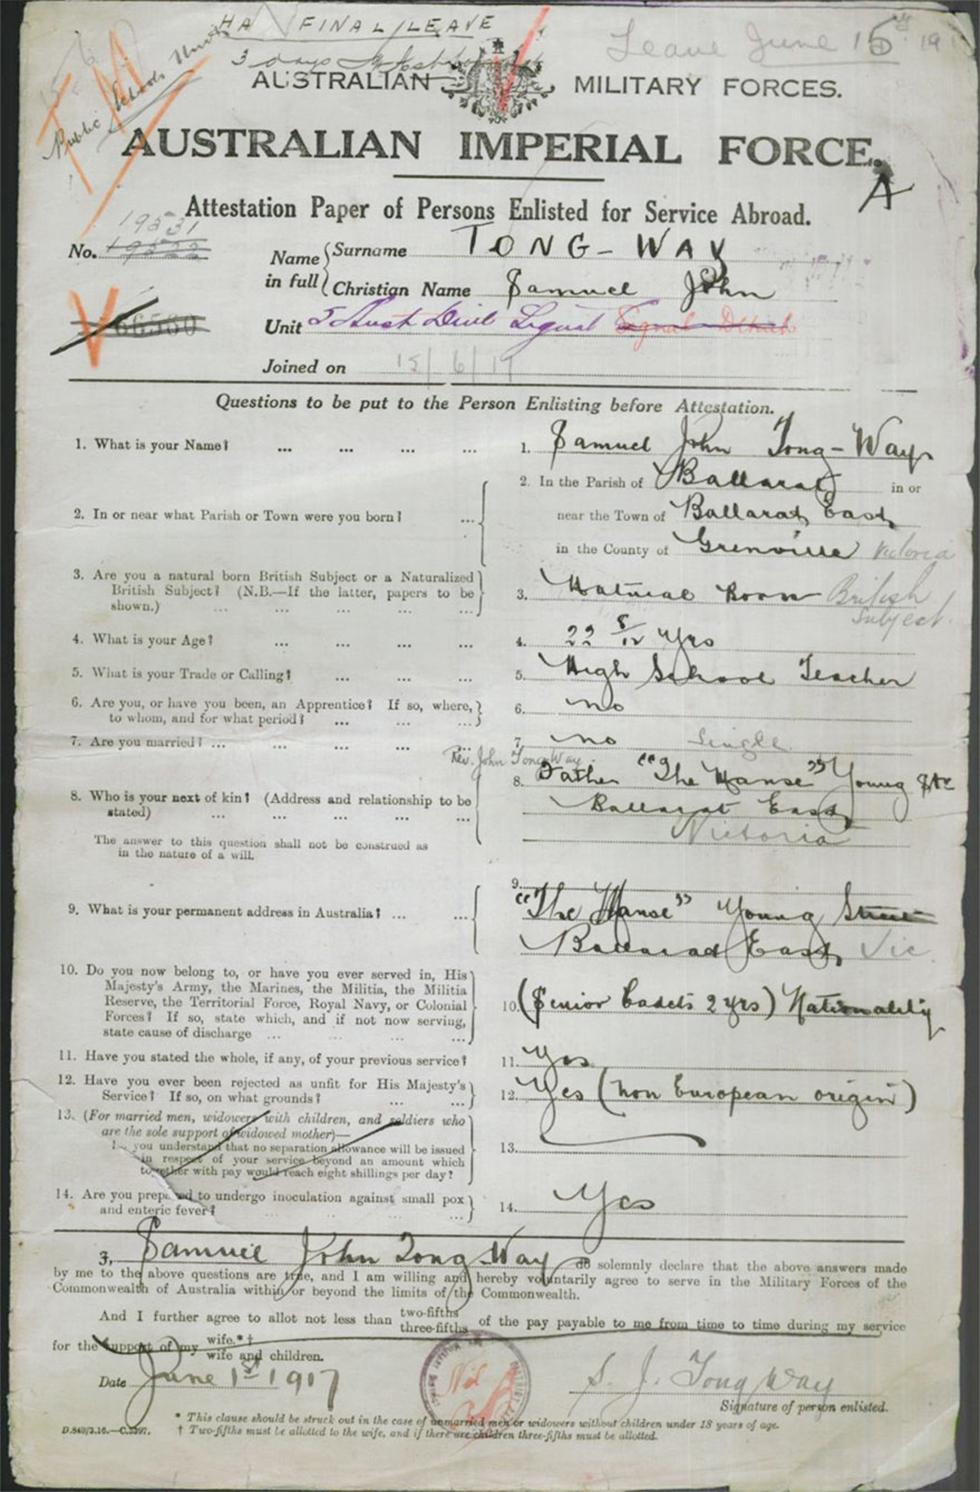 HA FINAL LEAVE
3 days
Leave June 15
Public Schools
AUSTRALIAN MILITARY FORCES.
AUSTRALIAN IMPERIAL FORCE.
A
Attestation Paper of Persons Enlisted for Service Abroad.
19531
No. 19522
Name in full Surname TONG-WAY
Christian Name Samuel John
66500
Unit 5 Aust Divl Signal Signal
Joined on 15/6/17
Questions to be put to the Person Enlisting before Attestation.
1. What is your Name? ... ... ... ... 1. Samuel John Tong-Way
2. In or near what Parish or Town were you born? ... 2. In the Parish of Ballarat in or
near the Town of Ballarat East
in the County of Grenville Victoria
3. Are you a natural born British Subject or a Naturalized
British Subject? (N.B.—If the latter, papers to be
shown.) ... ... ... ... 3. Natural Born British
Subject.
4. What is your Age? ... ... ... ... 4. 22 8/12 yrs
5. What is your Trade or Calling? ... ... ... 5. High School Teacher
6. Are you, or have you been, an Apprentice? If so, where,
to whom, and for what period? ... ... ... 6. no
7. Are you married? ... ... ... ... 7. no Single
Rev. John Tong Way
8. Who is your next of kin? (Address and relationship to be
stated) ... ... ... ... 8. Father "The Manse" Young Str
Ballarat East
Victoria
The answer to this question shall not be construed as
in the nature of a will.
9. What is your permanent address in Australia? ... ... 9. "The Manse" Young Street
Ballarat East Vic.
10. Do you now belong to, or have you ever served in, His
Majesty's Army, the Marines, the Militia, the Militia
Reserve, the Territorial Force, Royal Navy, or Colonial
Forces? If so, state which, and if not now serving,
state cause of discharge ... ... ... 10. (Senior Cadets 2 yrs) Nationality
11. Have you stated the whole, if any, of your previous service? 11. Yes
12. Have you ever been rejected as unfit for His Majesty's
Service? If so, on what grounds? ... ... 12. Yes (non European origin)
13. (For married men, widowers with children, and soldiers who
are the sole support of widowed mother)—
you understand that no separation allowance will be issued
in respect of your service beyond an amount which
together with pay would reach eight shillings per day? 13.
14. Are you prepared to undergo inoculation against small pox
and enteric fever? ... ... ... 14. Yes
I, Samuel John Tong Way do solemnly declare that the above answers made
by me to the above questions are true, and I am willing and hereby voluntarily agree to serve in the Military Forces of the
Commonwealth of Australia within or beyond the limits of the Commonwealth.
And I further agree to allot not less than two-fifths three-fifths of the pay payable to me from time to time during my service
for the support of my wife.*† wife and children.
Date June 1st 1917
Nil
S. J. Tong Way
Signature of person enlisted.
* This clause should be struck out in the case of unmarried men or widowers without children under 18 years of age.
D.840/2.16.—C.3297. † Two-fifths must be allotted to the wife, and if there are children three-fifths must be allotted.